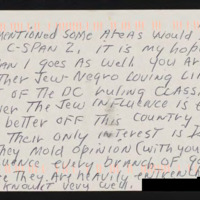 MENTIONED SOME AREAS WOULD
C-SPAN 2, IT IS MY HOP
AN I GOES AS WELL YOU AR
THER JEW-NEGRO LOVING LI
T OF THE DC RULING CLASS
ER THE JEW INFLUENCE IS E
BETTER OFF THIS COUNTRY
THEIR ONLY INTEREST IS F
THEY MOLD OPINION (WITH YOU
LUENCE EVERY BRANCH OF GO
RE THEY ARE HEAVILY ENTRENCH
KNOW IT VERY WELL.